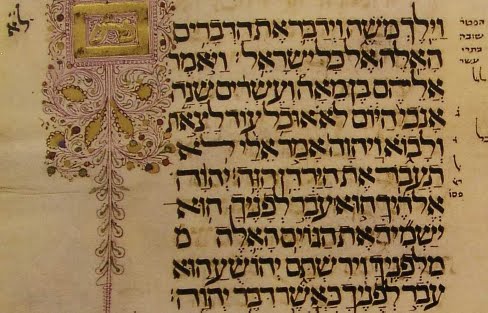 לא
פרש
וילך משה וידבר את הדברים
האלה אל כל ישראל ויאמר
אלהם בן מאה ועשרים שנה
אנכי היום לא אוכל עוד לצאת
ולבוא ויהוה אמר אלי לא
תעבר את הירדן הזה יהוה
אלהיך הוא עבר לפניך הוא
ישמיד את הגוים האלה מ
מלפניך וירשתם יהושע הוא
עבר לפניך כאשר דבר יהוה
הפטר
שובה
בתרי
עשר